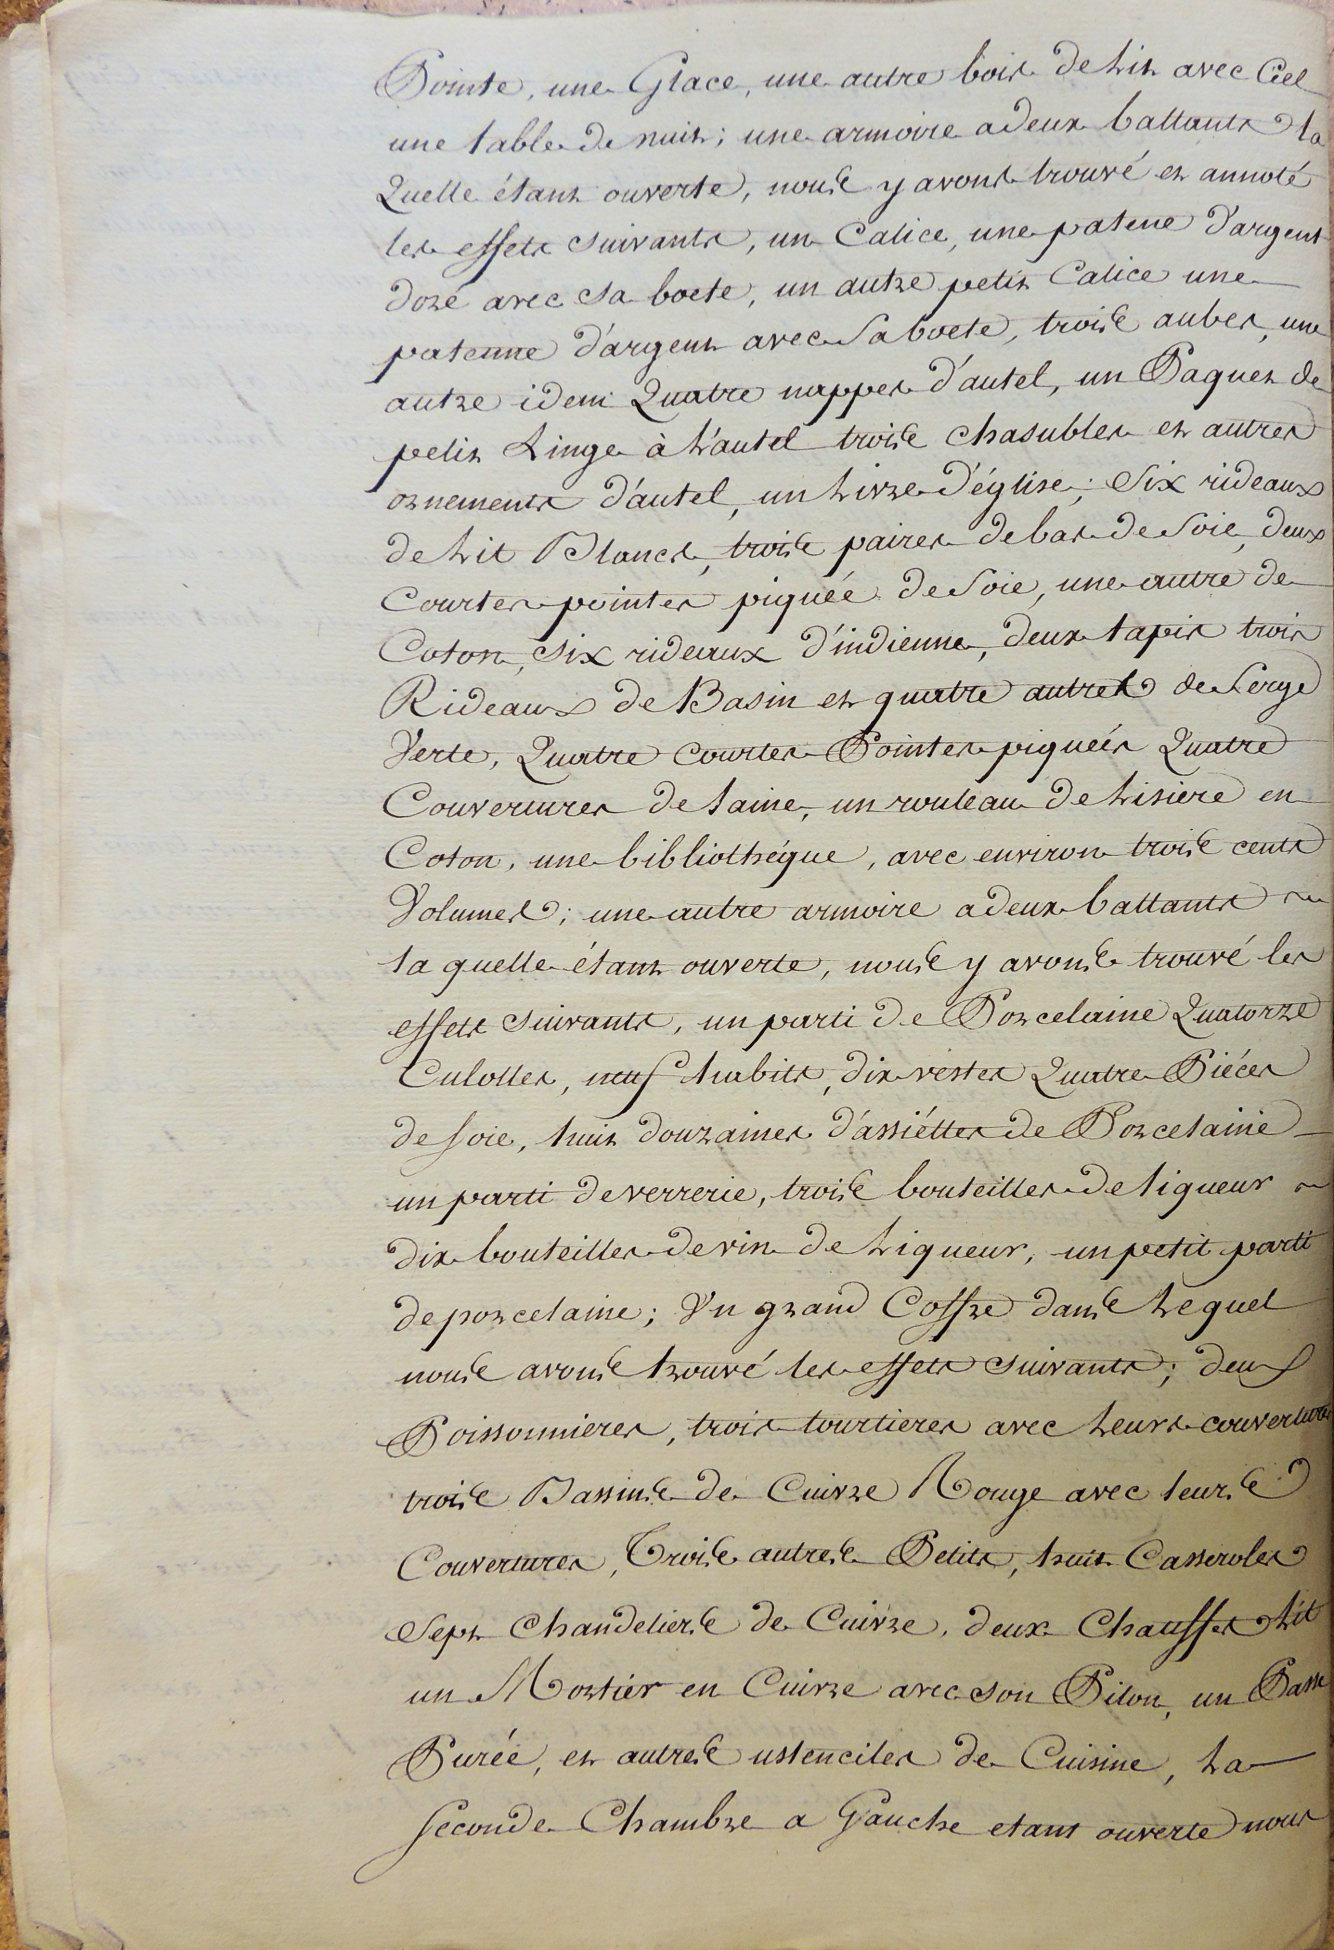 Pointe, une Glace, une autre bois de Lit avec Ciel
une table de nuit; une armoire a deux battants la
Quelle étant ouverte, nous y avons trouvé et annoté
les effets suivants, un Calice, une patene d'argent
doré avec sa boete, un autre petit Calice une
patenne d'argent avec sa boete, trois aubes, une
autre idem Quatre nappes d'autel, un Paquet de
petit Linge à L'autel trois chasubles et autres
ornements d'autel, un Livre d'église; Six rideaux
de Lit Blancs, trois paires de bas de Soie, deux
Courtes pointes piquéé de Soie, une autre de
Coton, six rideaux d'indienne, deux tapis trois
Rideaux de Basin et quatre autres de Serge
Verte, Quatre courtes Pointes piquéés Quatre
Couvertures de laine, un rouleau de Lisiere en
Coton, une bibliothéque, avec environ trois cents
Volumes; une autre armoire a deux battants
la quelle étant ouverte, nous y avons trouvé les
effets suivants, un parti de Porcelaine Quatorze
Culottes, neuf habits, dix vestes Quatre Piéces
de soie, huit douzaines d'assiéttes de Porcelaine
un parti de verrerie, trois bouteilles de liqueur
dix bouteilles de vin de Liqueur, un petit parti
de porcelaine; Un grand Coffre dans Lequel
nous avons trouvé les effets suivants; deux
Poissonnieres, trois tourtieres avec Leurs couvertures
trois Bassins de Cuivre Rouge avec leurs
Couvertures, Trois autres Petits, huit Casseroles
Sept Chandeliers de Cuivre, deux Chauffes Lit
un Mortier en Cuivre avec son Pilon, un Passe
Purée, et autres ustenciles de Cuisine, La
seconde Chambre a Gauche etant ouverte nous